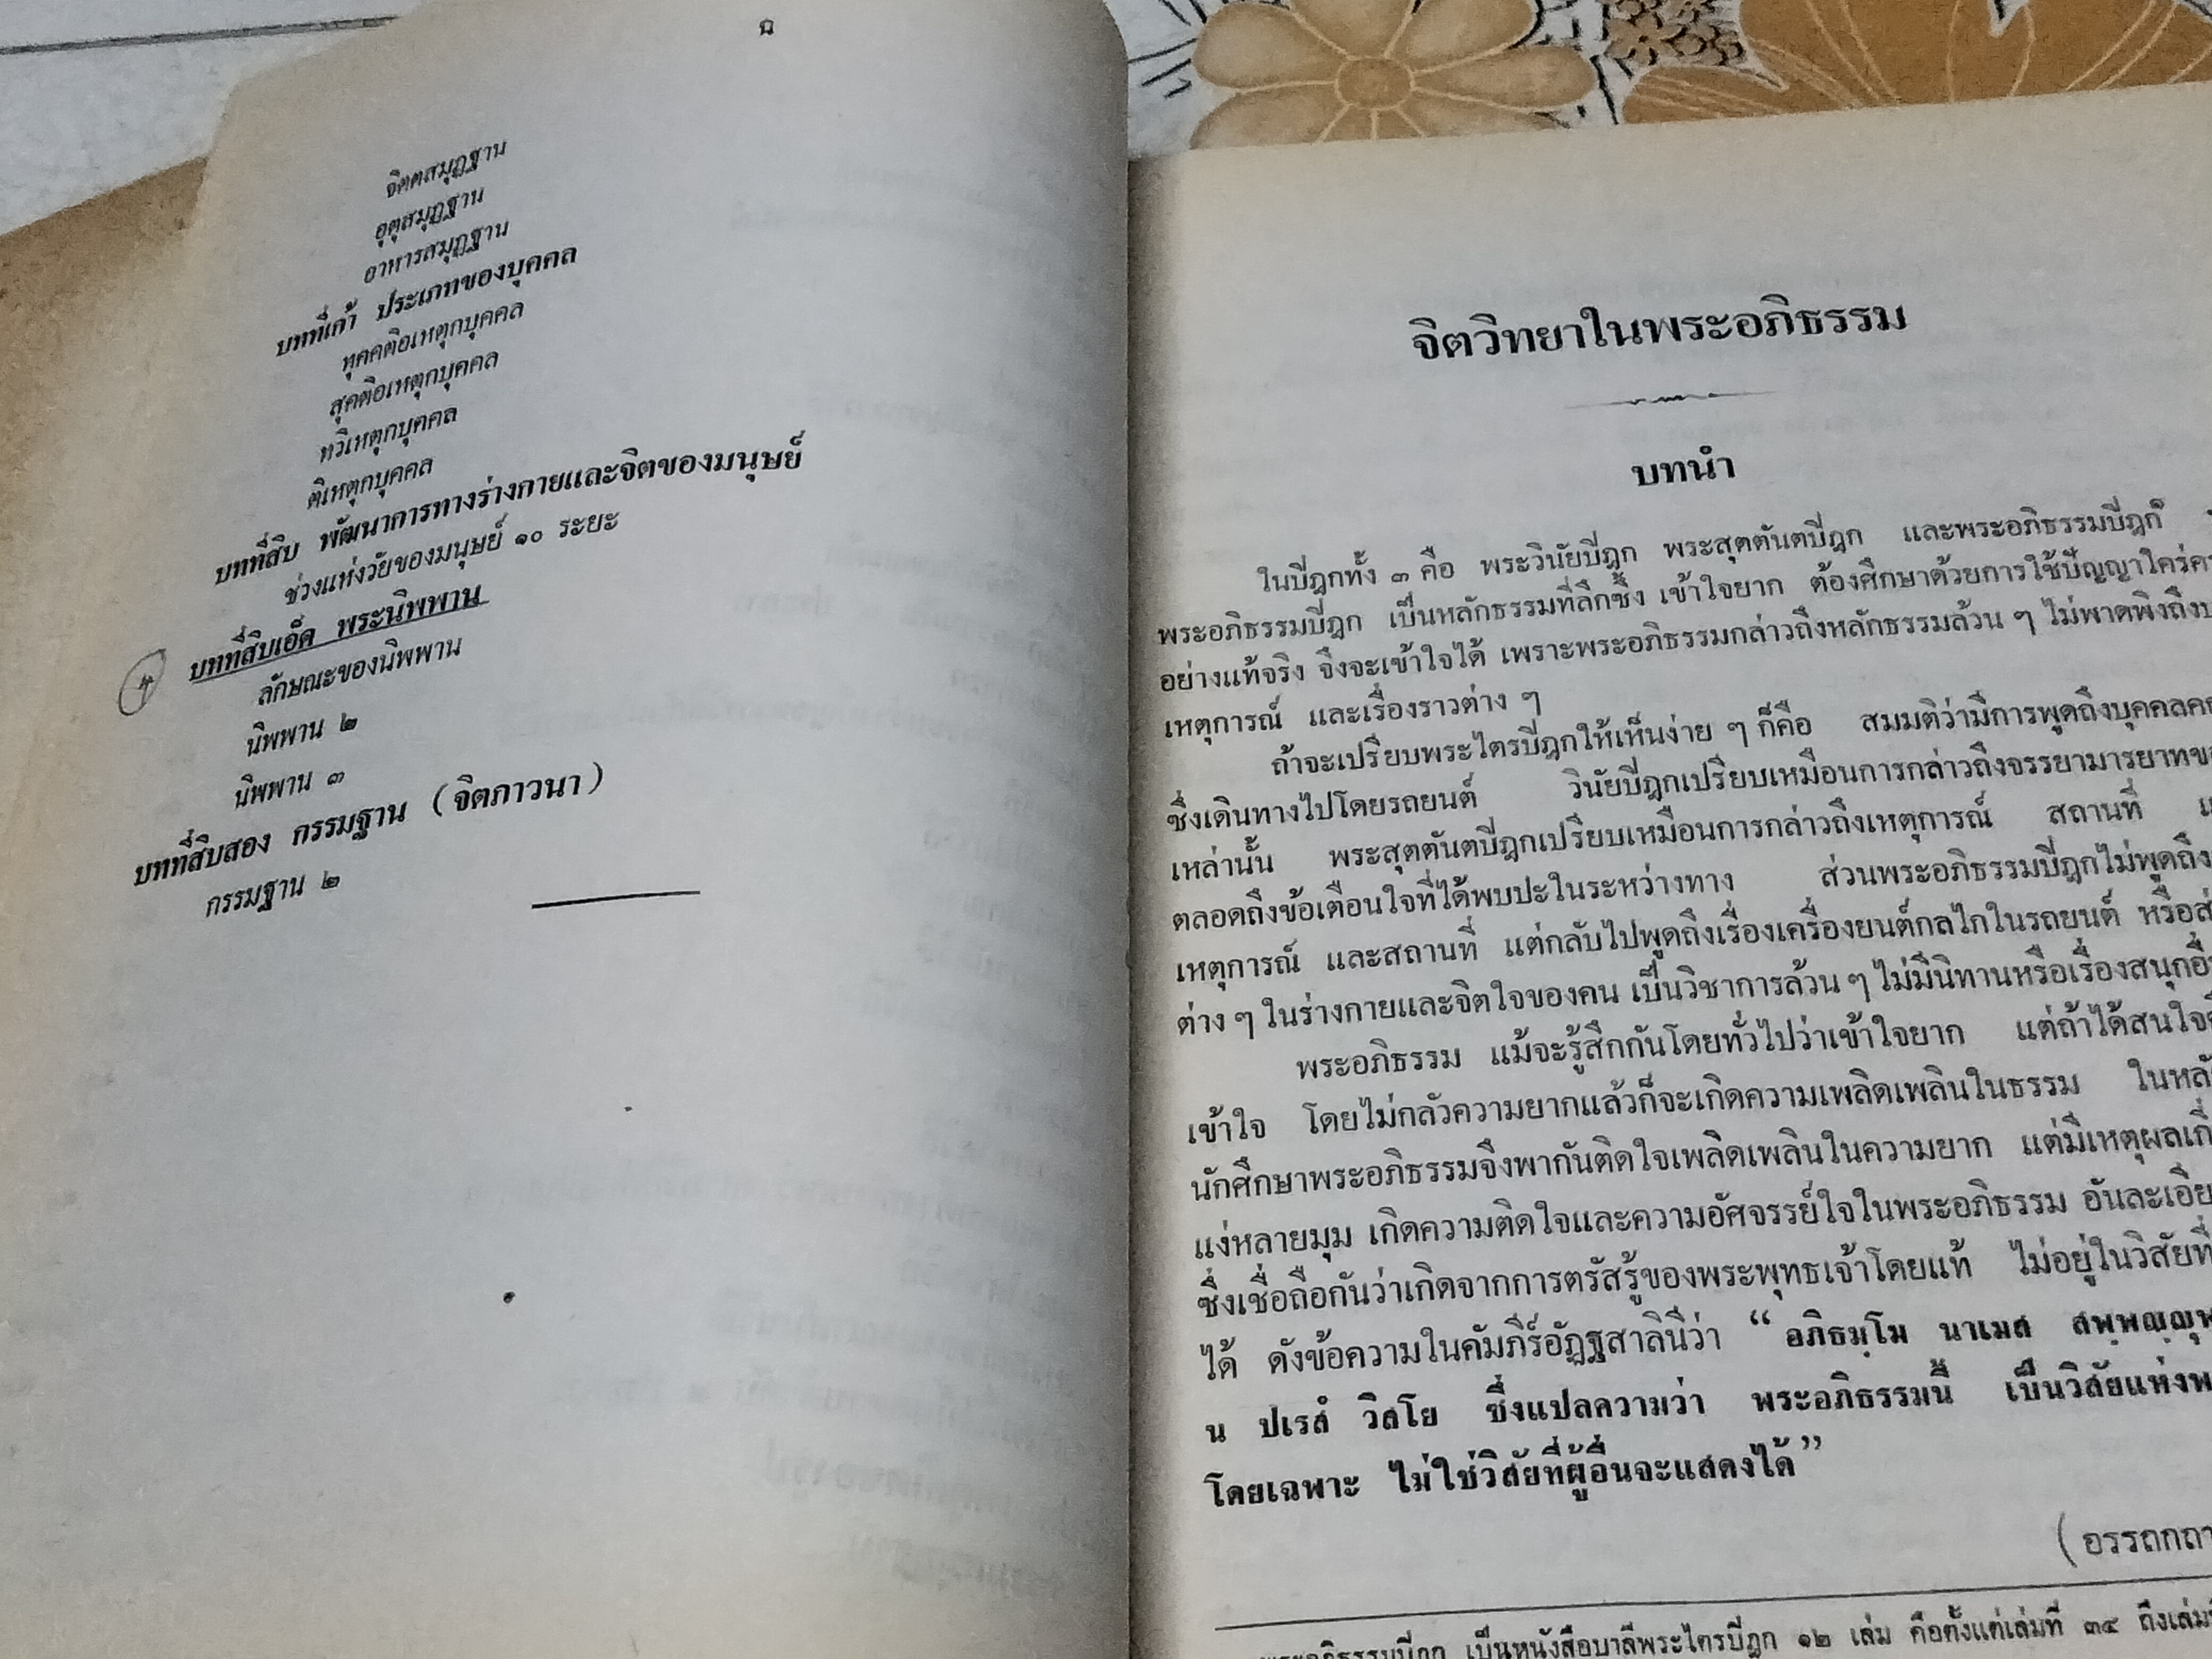 ฉ
จิตตสมุฏฐาน
อุตุสมุฏฐาน
อาหารสมุฏฐาน
บทที่เก้า ประเภทของบุคคล
ทุคคติอเหตุกบุคคล
สุคติอเหตุกบุคคล
ทวิเหตุกบุคคล
ติเหตุกบุคคล
บทที่สิบ พัฒนาการทางร่างกายและจิตของมนุษย์
ช่วงแห่งวัยของมนุษย์ ๑๐ ระยะ
บทที่สิบเอ็ด พระนิพพาน
ลักษณะของนิพพาน
นิพพาน ๒
นิพพาน ๓
บทที่สิบสอง กรรมฐาน (จิตภาวนา)
กรรมฐาน ๒
จิตวิทยาในพระอภิธรรม
บทนำ
ในปิฎกทั้ง ๓ คือ พระวินัยปิฎก พระสุตตันตปิฎก และพระอภิธรรมปิฎก
พระอภิธรรมปิฎก เป็นหลักธรรมที่ลึกซึ้ง เข้าใจยาก ต้องศึกษาด้วยการใช้ปัญญา
อย่างแท้จริง จึงจะเข้าใจได้ เพราะพระอภิธรรมกล่าวถึงหลักธรรมล้วน ๆ ไม่พาดพิงถึง
เหตุการณ์ และเรื่องราวต่าง ๆ
ถ้าจะเปรียบพระไตรปิฎกให้เห็นง่าย ๆ ก็คือ สมมติว่ามีการพูดถึงบุคคล
ซึ่งเดินทางไปโดยรถยนต์ วินัยปิฎกเปรียบเหมือนการกล่าวถึงจรรยามารยาท
เหล่านั้น พระสุตตันตปิฎกเปรียบเหมือนการกล่าวถึงเหตุการณ์ สถานที่
ตลอดถึงข้อเตือนใจที่ได้พบปะในระหว่างทาง ส่วนพระอภิธรรมปิฎกไม่พูดถึง
เหตุการณ์ และสถานที่ แต่กลับไปพูดถึงเรื่องเครื่องยนต์กลไกในรถยนต์ หรือ
ต่าง ๆ ในร่างกายและจิตใจของคน เป็นวิชาการล้วน ๆ ไม่มีนิทานหรือเรื่องสนุก
พระอภิธรรม แม้จะรู้สึกกันโดยทั่วไปว่าเข้าใจยาก แต่ถ้าได้สนใจ
เข้าใจ โดยไม่กลัวความยากแล้วก็จะเกิดความเพลิดเพลินในธรรม ในหลัก
นักศึกษาพระอภิธรรมจึงพากันติดใจเพลิดเพลินในความยาก แต่มีเหตุผล
แง่หลายมุม เกิดความติดใจและความอัศจรรย์ใจในพระอภิธรรม อัน
ซึ่งเชื่อถือกันว่าเกิดจากการตรัสรู้ของพระพุทธเจ้าโดยแท้ ไม่อยู่ในวิสัยที่
ได้ ดังข้อความในคัมภีร์อัฏฐสาลินีว่า “ อภิธมฺโม นาเมส
น ปเรสํ วิสโย ซึ่งแปลความว่า พระอภิธรรมนี้ เป็นวิสัยแห่ง
โดยเฉพาะ ไม่ใช่วิสัยที่ผู้อื่นจะแสดงได้”
พระอภิธรรมปิฎก เป็นหนังสือบาลีพระไตรปิฎก ๑๒ เล่ม คือตั้งแต่เล่มที่ ๓๔ ถึงเล่ม